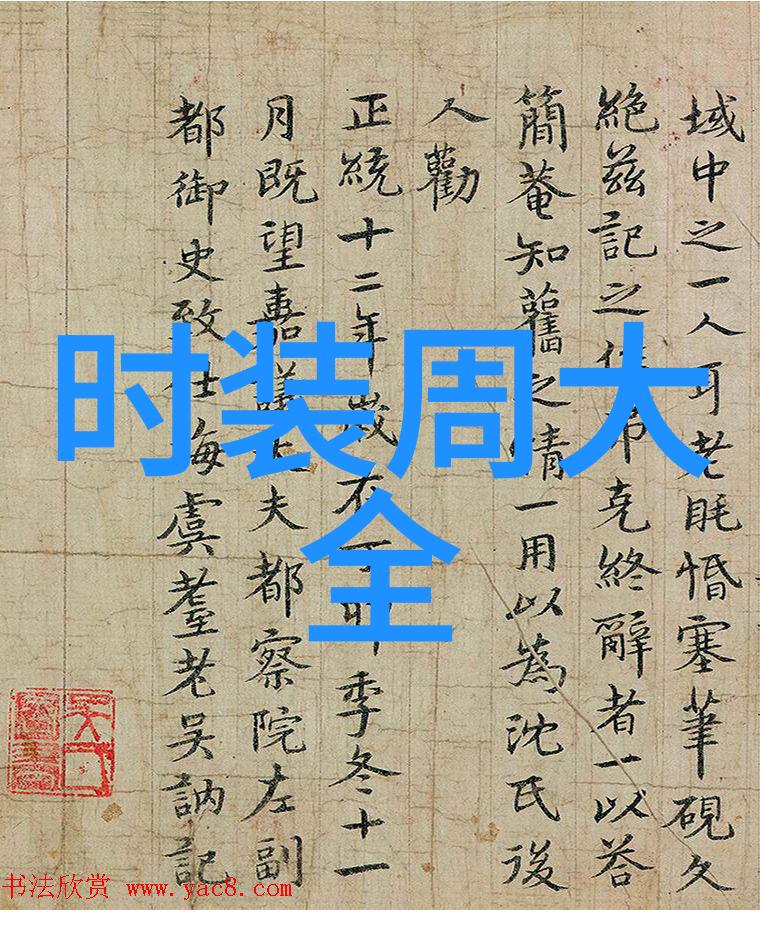 域中之一人耳老眊惛塞筆硯久
絶兹記之作弗克終辭者一以荅
簡菴知舊之情一用以為沈氏後
人勸
正統十二年歲在季冬十一
月既望嘉議大夫都察院左副
都御史致仕海虞耋老吳訥記
时装周大
全
书法欣赏 www.yac8.com